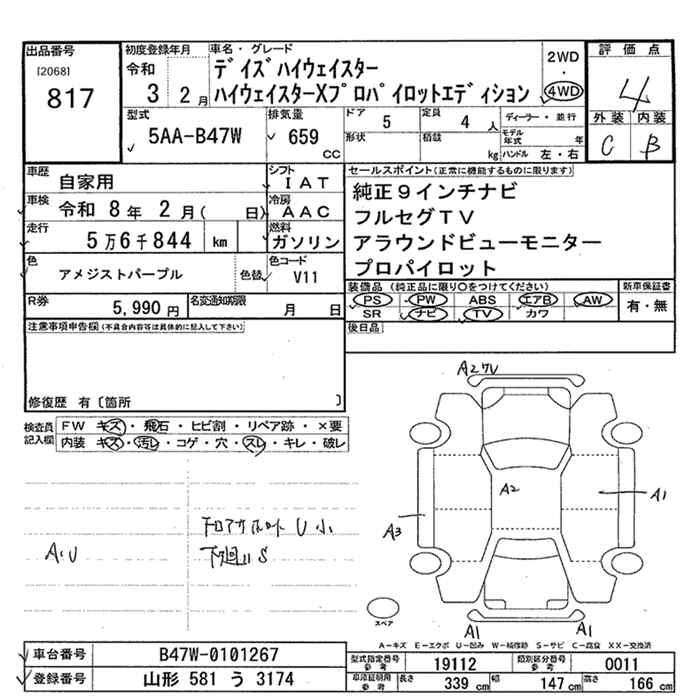 出品番号
[2068]
817
初度登録年月
令和
3 2月
車名・グレード
デイズハイウェイスター
ハイウェイスターXプロパイロットエディション
2WD
・
4WD
評価点
4
外装 内装
C B
型式
5AA-B47W
排気量
659
cc
ドア 5
定員 4 人
ディーラー・並行
形状
積載 kg
モデル年式 年
ハンドル 左・右
車歴
自家用
シフト
IAT
車検
令和 8年 2月( 日)
冷房
AAC
走行
5万6千844 km
燃料
ガソリン
色
アメジストパープル
色替
色コード
V11
R券
5,990円
名変通知期限
月 日
セールスポイント(正常に機能するものに限ります)
純正9インチナビ
フルセグTV
アラウンドビューモニター
プロパイロット
装備品 (純正品に限り○をつけてください)
PS PW ABS エアB AW
SR ナビ TV カワ
新車保証書
有・無
後日品
注意事項申告欄(不具合内容等は具体的に記入して下さい)
修復歴 有〔箇所 〕
検査員記入欄
FW キズ・飛石・ヒビ割・リペア跡・×要
内装 キズ・汚レ・コゲ・穴・スレ・キレ・破レ
A,U
下廻りS
A2
A1
A3
A1
A1
スペア
A-キズ E-エクボ U-凹み W-補修跡 S-サビ C-腐食 XX-交換済
車台番号
B47W-0101267
登録番号
山形 581 う 3174
型式指定番号
参考
19112
類別区分番号
参考
0011
車庫証明用
参考
長さ
339 cm
幅
147 cm
高さ
166 cm